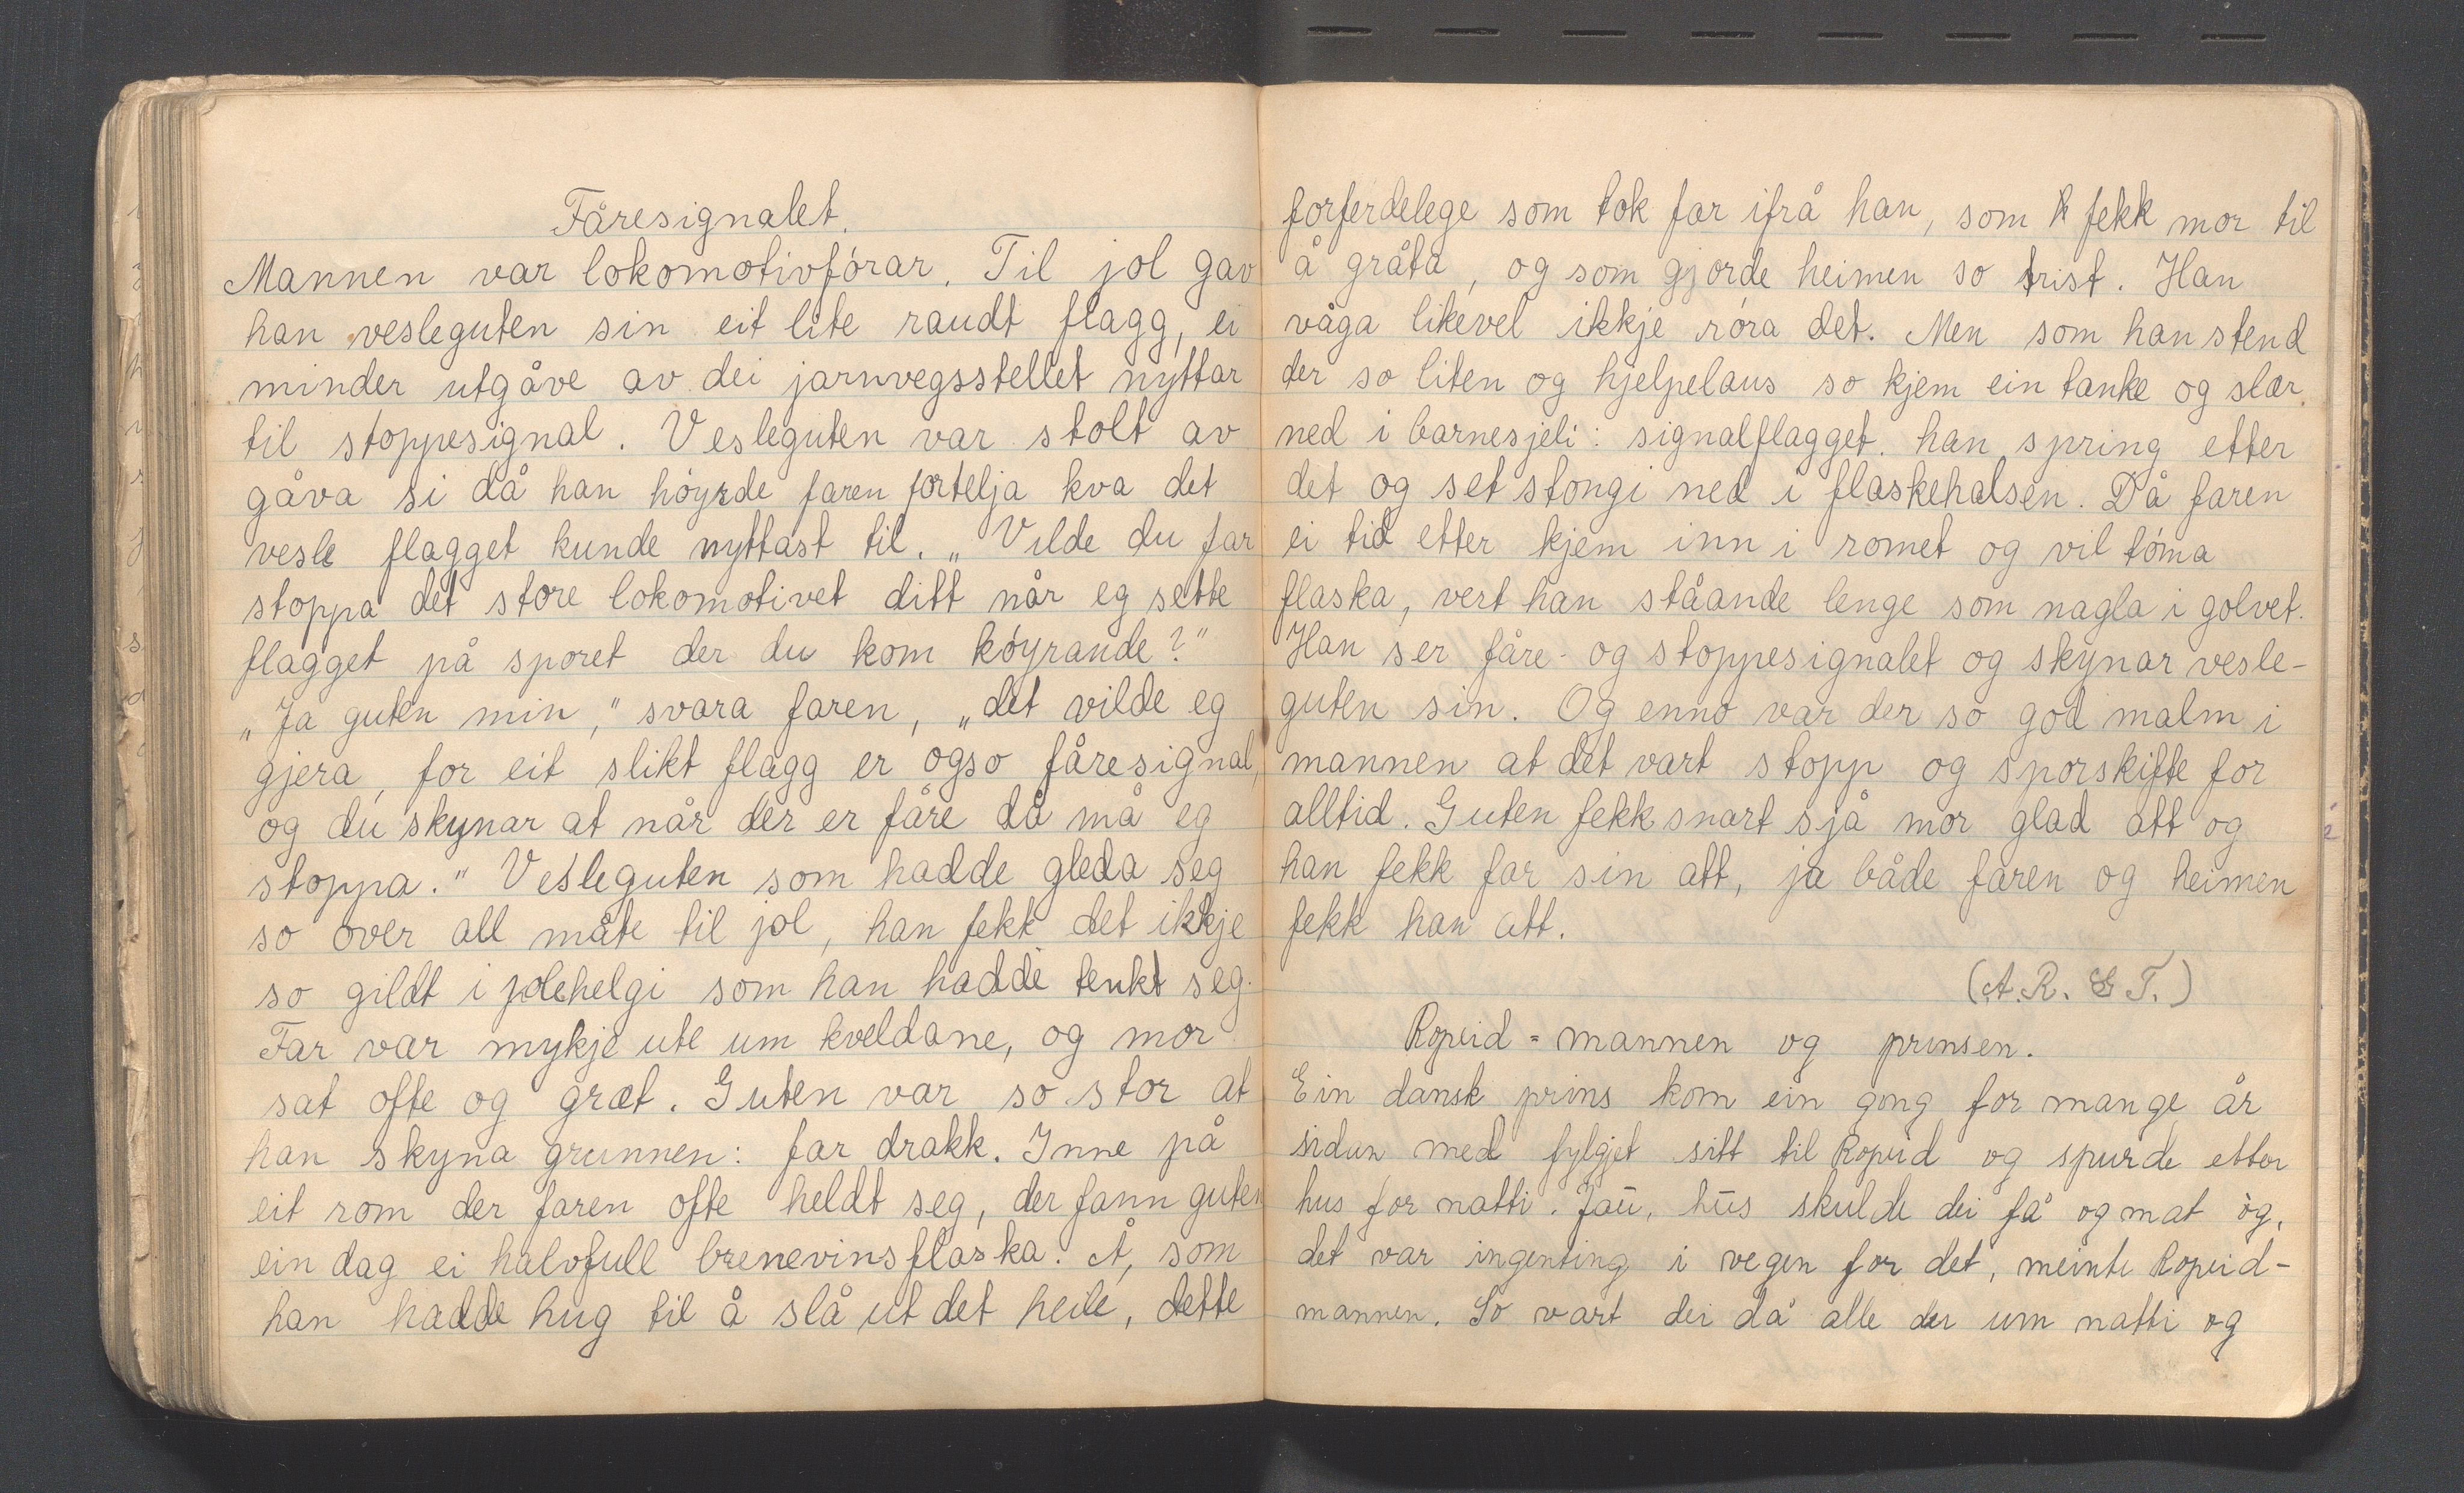 Fåresignalet.
Mannen var lokomotivfórar. Til jol gav
han vesleguten sin eit lite raudt flagg, ei
minder utgåve av dei jarnvegsstellet nyttar
til stoppesignal. Vesleguten var stolt av
gåva si då han hóyrde faren fortelja kva det
vesle flagget kunde nyttast til. „Vilde du far
stoppa det store lokomotivet ditt når eg sette
flagget på sporet der du kom kóyrande?"
„Ja guten min," svara faren, „det vilde eg
gjera, for eit slikt flagg er ogso fåresignal,
og du skynar at når der er fåre då må eg
stoppa." Vesleguten som hadde gleda seg
so over all måte til jol, han fekk det ikkje
so gildt i jolehelgi som han hadde tenkt seg.
Far var mykje ute um kveldane, og mor
sat ofte og græt. Guten var so stor at
han skyna grunnen: far drakk. Inne på
eit rom der faren ofte heldt seg, der fann guten
ein dag ei halvfull brenevinsflaska. Å, som
han hadde hug til å slå ut det heile, dette
forferdelege som tok far ifrå han, som fekk mor til
å gråta, og som gjorde heimen so trist. Han
våga likevel ikkje róra det. Men som han stend
der so liten og hjelpelaus so kjem ein tanke og slær
ned i barnesjeli: signalflagget. han spring etter
det og set stongi ned i flaskehalsen. Då faren
ei tid etter kjem inn i romet og vil tóma
flaska, vert han ståande lenge som nagla i golvet.
Han ser fåre- og stoppesignalet og skynar vesle-
guten sin. Og enno var der so god malm i
mannen at det vart stopp og sporskifte for
alltid. Guten fekk snart sjå mor glad att og
han fekk far sin att, ja både faren og heimen
fekk han att.
(A.R. G T.)
Ropeid-mannen og prinsen.
Ein dansk prins kom ein gong for mange år
sidan med fylgjet sitt til Ropeid og spurde etter
hus for natti. Jau, hus skulde dei få og mat òg,
det var ingenting i vegen for det, meinte Ropeid-
mannen. So vart dei då alle der um natti og